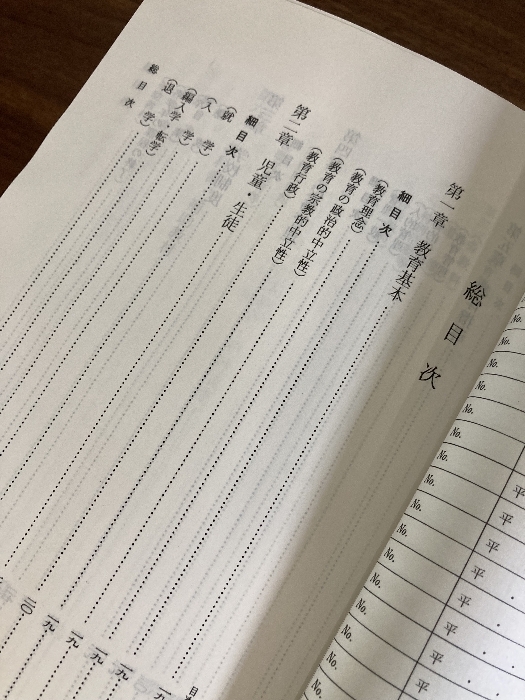 総目次
第一章 教育基本
細目次
(教育理念)
(教育の政治的中立性)
(教育の宗教的中立性)
(教育行政)
第二章 児童・生徒
細目次
(就学)
(入学)
(編入学・転学)
(退学)
総目次
目
一九
一九
一九
一九
二〇
No.
No.
No.
No.
No.
No.
No.
No.
No.
No.
No.
No.
No.
No.
No.
No.
平
平
平
平
平
平
平